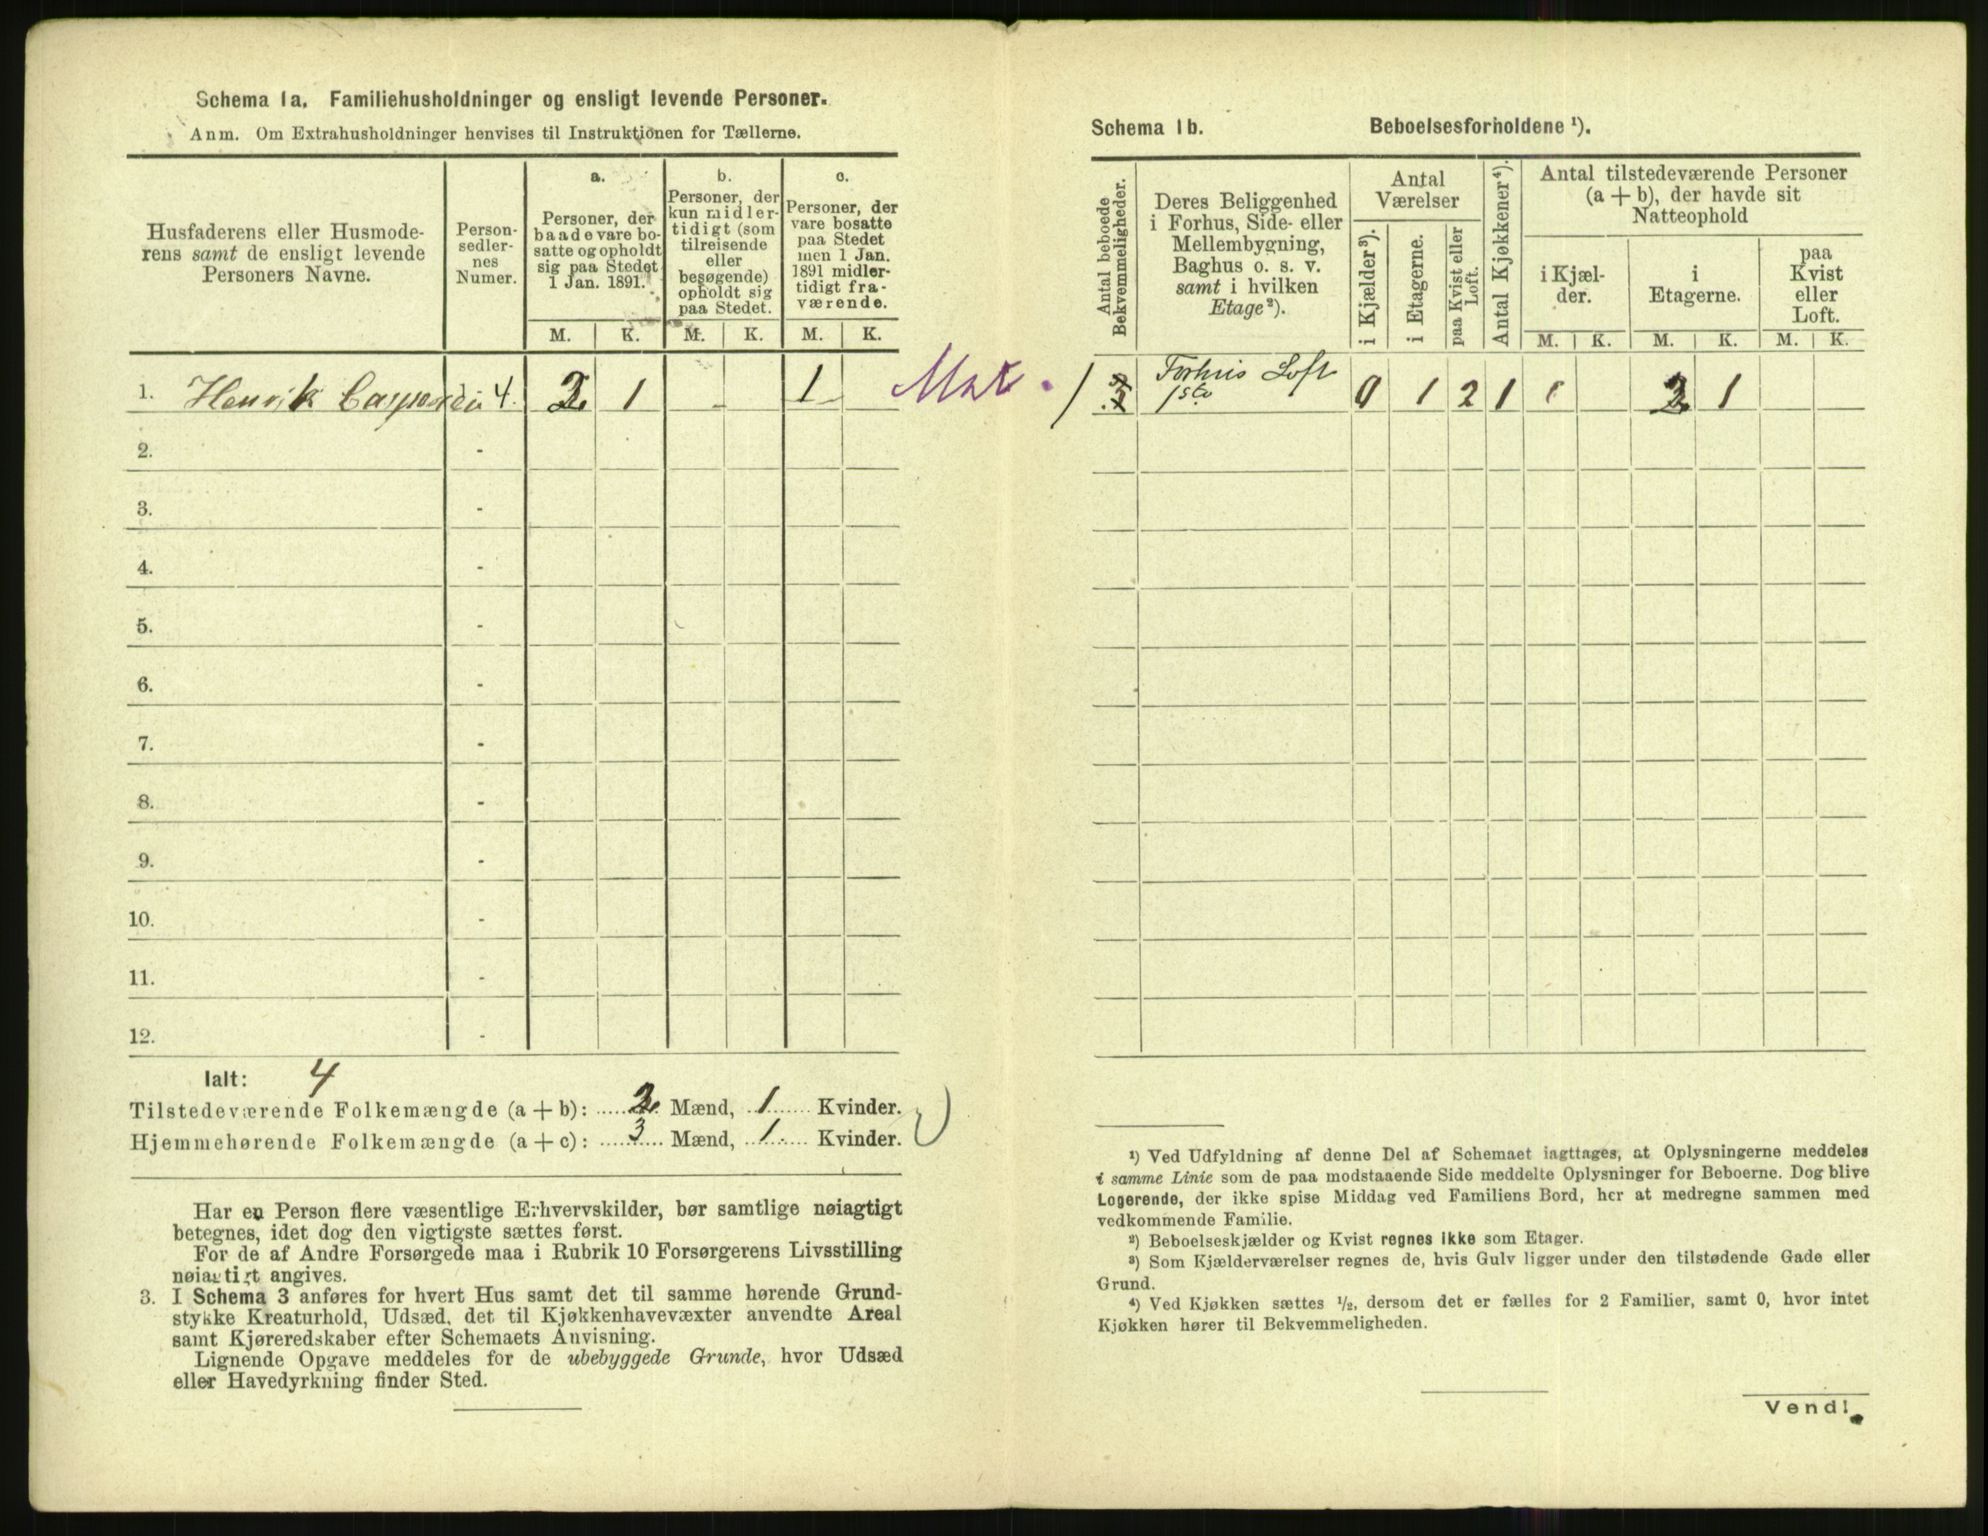 Schema 1a. Familiehusholdninger og ensligt levende Personer.
Anm. Om Extrahusholdninger henvises til Instruktionen for Tællerne.
Husfaderens eller Husmode-
rens samt de ensligt levende
Personers Navne.
Person-
sedler-
nes
Numer.
a.
Personer, der
baade vare bo-
satte og opholdt
sig paa Stedet
1 Jan. 1891.
b.
Personer, der
kun midler-
tidigt (som
tilreisende
eller
besøgende)
opholdt sig
paa Stedet.
c.
Personer, der
vare bosatte
paa Stedet
men 1 Jan.
1891 midler-
tidigt fra-
værende.
M. K. M. K. M. K.
1. Henrik 4. 2 1 1
2. -
3. -
4. -
5. -
6. -
7. -
8. -
9. -
10. -
11. -
12. -
Ialt: 4
Tilstedeværende Folkemængde (a + b): 2 Mænd, 1 Kvinder.
Hjemmehørende Folkemængde (a + c): 3 Mænd, 1 Kvinder.
Har en Person flere væsentlige Erhvervskilder, bør samtlige nøiagtigt
betegnes, idet dog den vigtigste sættes først.
For de af Andre Forsørgede maa i Rubrik 10 Forsørgerens Livsstilling
nøiagtigt angives.
3. I Schema 3 anføres for hvert Hus samt det til samme hørende Grund-
stykke Kreaturhold, Udsæd, det til Kjøkkenhavevæxter anvendte Areal
samt Kjøreredskaber efter Schemaets Anvisning.
Lignende Opgave meddeles for de ubebyggede Grunde, hvor Udsæd
eller Havedyrkning finder Sted.
Schema 1b. Beboelsesforholdene ¹).
Antal beboede
Bekvemmeligheder.
Deres Beliggenhed
i Forhus, Side- eller
Mellembygning,
Baghus o. s. v.
samt i hvilken
Etage²).
Antal
Værelser
i Kjælder³).
i Etagerne.
paa Kvist eller
Loft.
Antal Kjøkkener⁴).
Antal tilstedeværende Personer
(a + b), der havde sit
Natteophold
i Kjæl-
der.
i
Etagerne.
paa
Kvist
eller
Loft.
M. K. M. K. M. K.
Forhus Loft
1ste 0 1 2 1 2 1
¹) Ved Udfyldning af denne Del af Schemaet iagttages, at Oplysningerne meddeles
i samme Linie som de paa modstaaende Side meddelte Oplysninger for Beboerne. Dog blive
Logerende, der ikke spise Middag ved Familiens Bord, her at medregne sammen med
vedkommende Familie.
²) Beboelseskjælder og Kvist regnes ikke som Etager.
³) Som Kjælderværelser regnes de, hvis Gulv ligger under den tilstødende Gade eller
Grund.
⁴) Ved Kjøkken sættes ½, dersom det er fælles for 2 Familier, samt 0, hvor intet
Kjøkken hører til Bekvemmeligheden.
Vend!